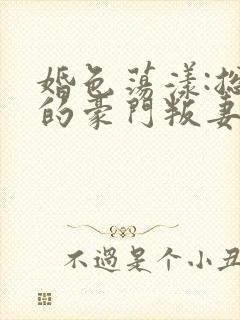 婚色荡漾:
的豪門叛妻
不過是个小丑